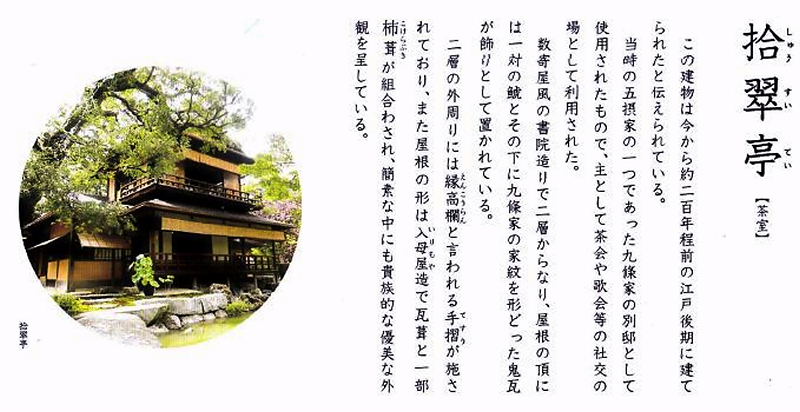 拾翠亭
しゅう すい てい
【茶室】
この建物は今から約二百年程前の江戸後期に建て
られたと伝えられている。
当時の五摂家の一つであった九條家の別邸として
使用されたもので、主として茶会や歌会等の社交の
場として利用された。
数寄屋風の書院造りで二層からなり、屋根の頂に
は一対の鯱とその下に九條家の家紋を形どった鬼瓦
が飾りとして置かれている。
二層の外周りには縁高欄と言われる手摺が施さ
えんこうらん てすり
れており、また屋根の形は入母屋造で瓦葺と一部
いりもや
杮葺が組合わされ、簡素な中にも貴族的な優美な外
こけらぶき
観を呈している。
拾翠亭